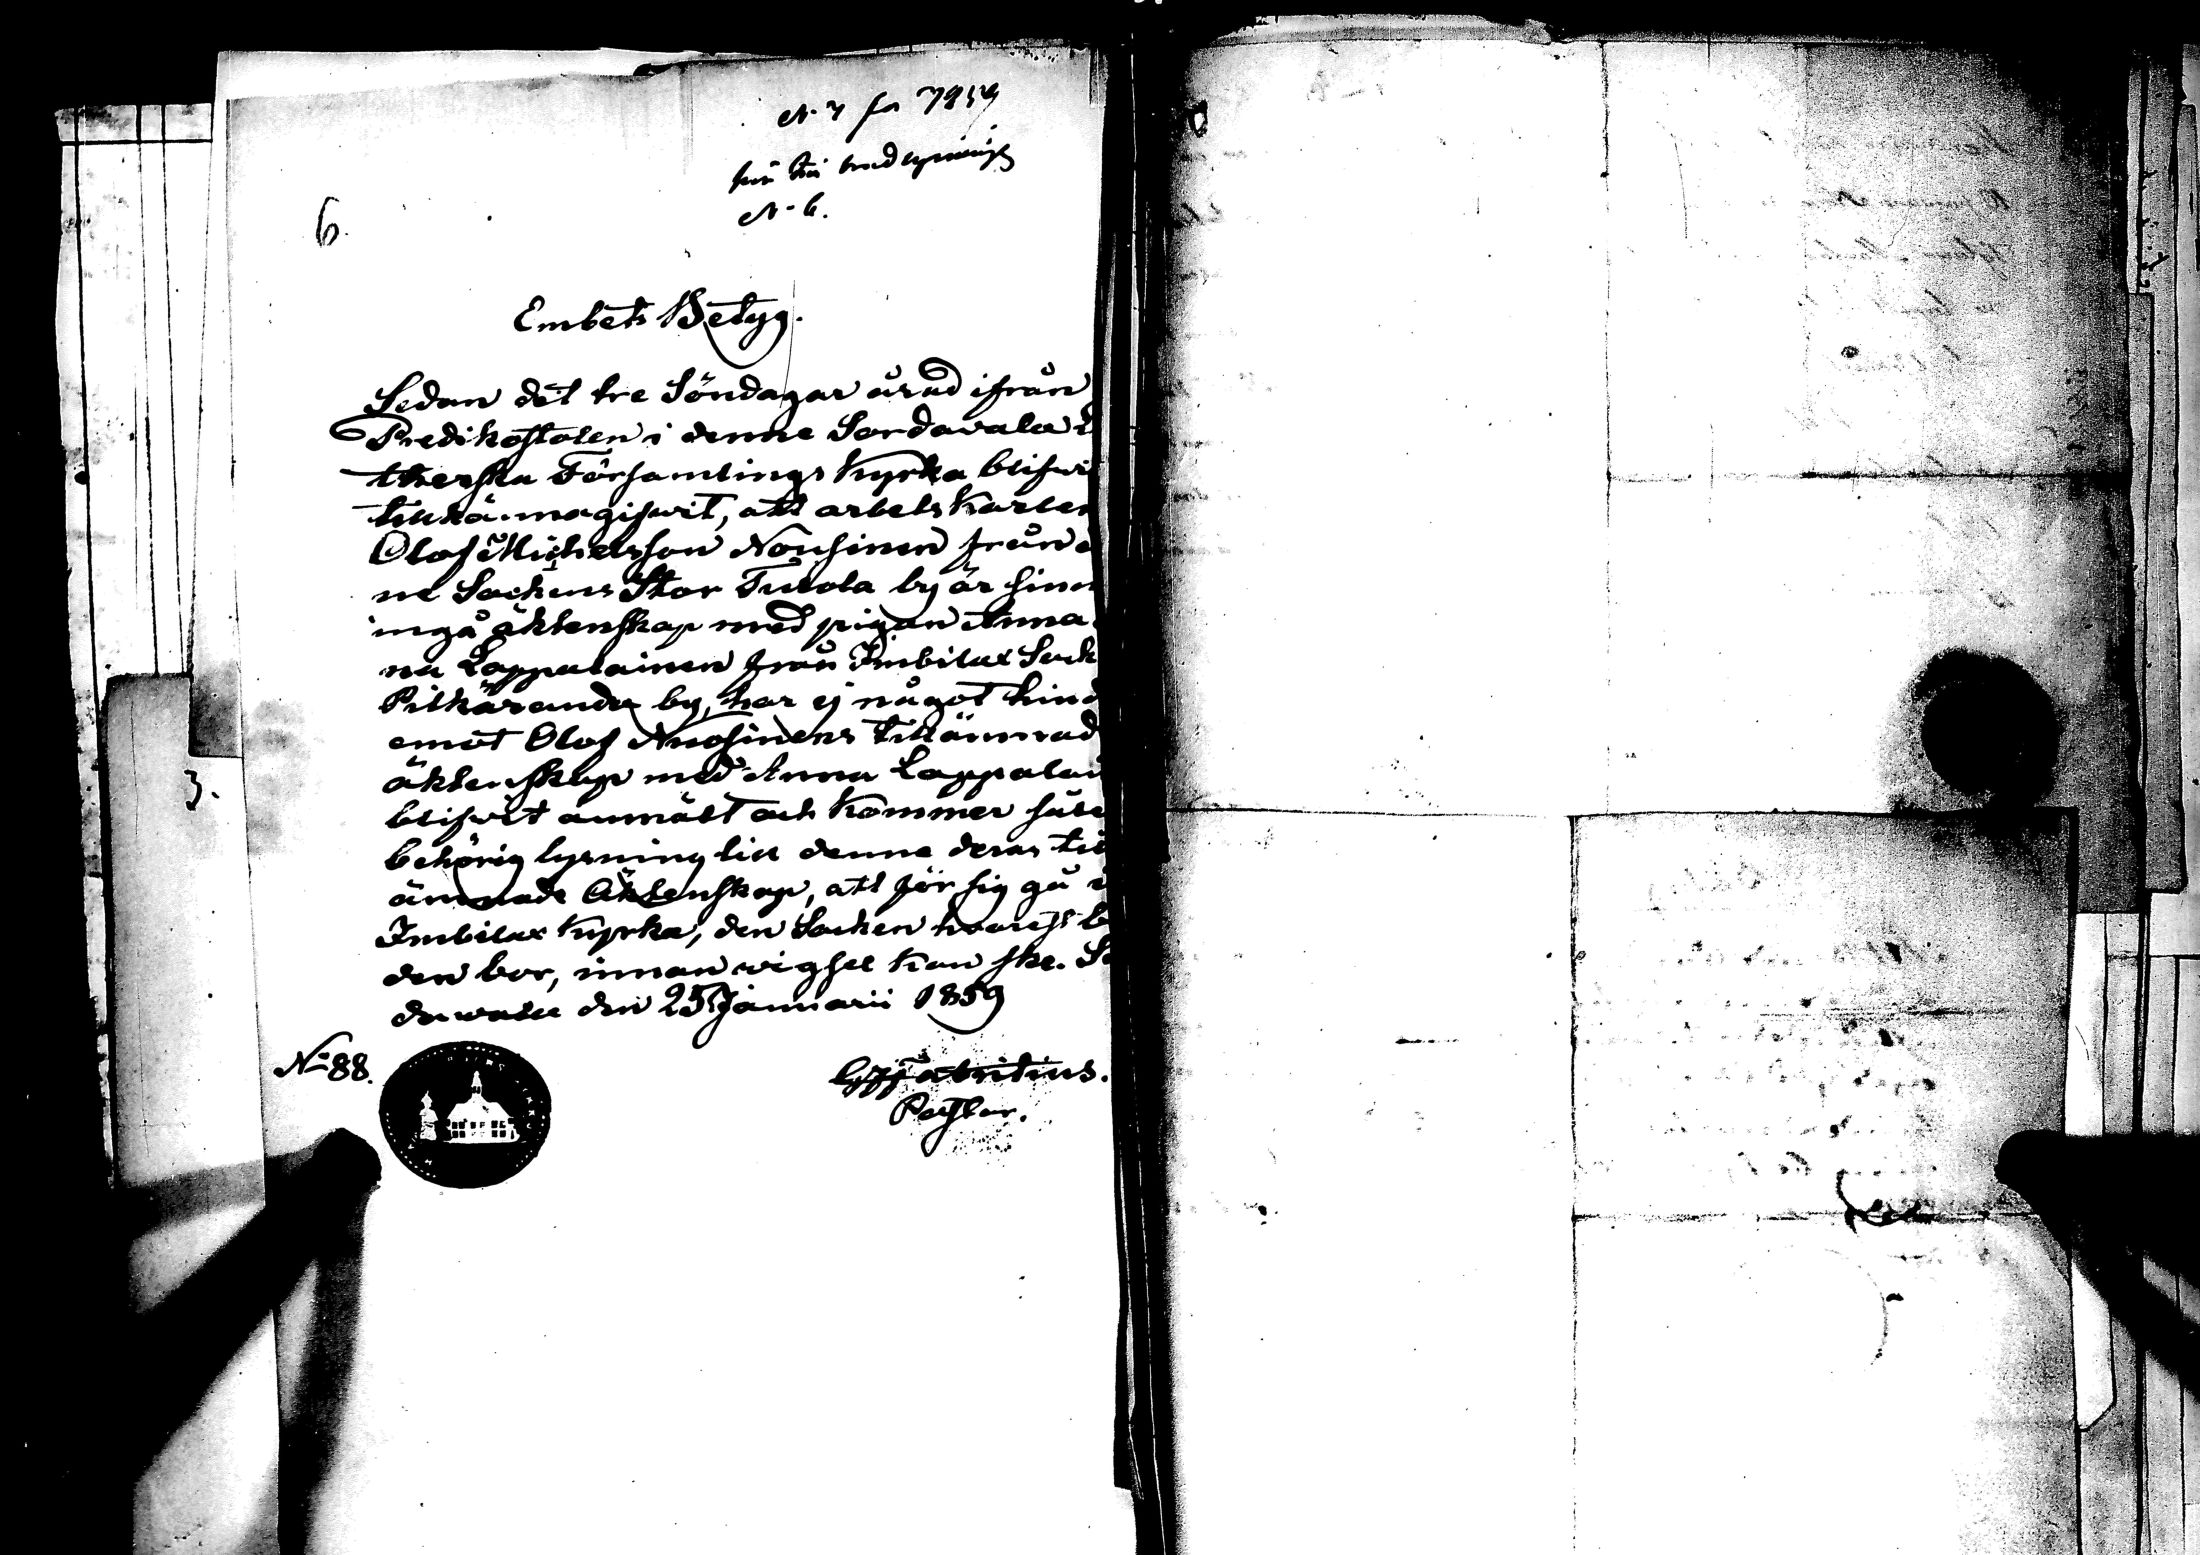 N. 7 för 1859
N. 6.
6.
Embets Betyg.
Sedan det tre Söndagar å rad ifrån
Predikostolen i denne Sordavala
therska Församlings Kyrka blifvi
tillkännagifvit, att arbetskarlen
Olof Michelsson Nousinen från
ne Sockens Stor Tulola by är sinn
ingå äktenskap med pigan Anna
na Lappalainen från Imbilax Sock
Pitkäranda by, har ej något hind
emot Olof Nuosinens tillämnad
äktenskap med Anna Lappalai
blifvit anmält och kommer
behörig lysning till denne deras till
ämnade Äktenskap, att för sig gå i
Imbilax Kyrka, den Socken hvarest b
den bor, innan vigsel kan ske. So
davala den 25 Januarii 1859
No 88.
Fabritius.
Pastor.
3.